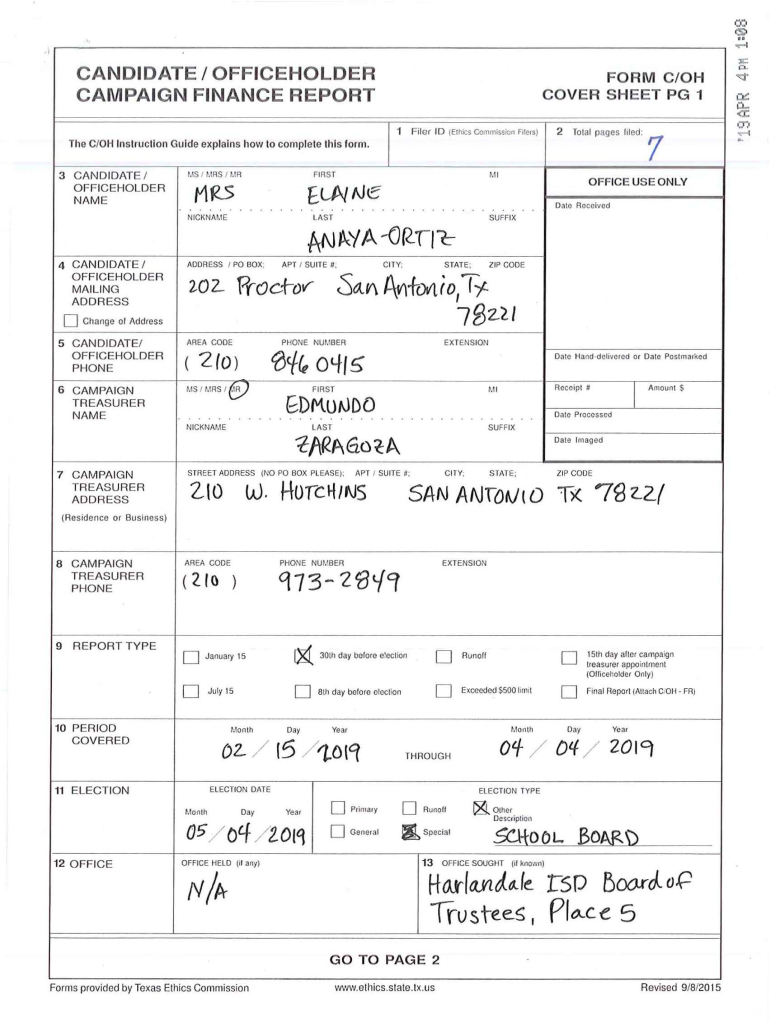 '19 APR 4 PM 1:08
CANDIDATE / OFFICEHOLDER
CAMPAIGN FINANCE REPORT
FORM C/OH
COVER SHEET PG 1
The C/OH Instruction Guide explains how to complete this form.
1 Filer ID (Ethics Commission Filers)
2 Total pages filed:
7
3 CANDIDATE /
OFFICEHOLDER
NAME
MS / MRS / MR FIRST MI
MRS ELAINE
NICKNAME LAST SUFFIX
ANAYA-ORTIZ
OFFICE USE ONLY
Date Received
4 CANDIDATE /
OFFICEHOLDER
MAILING
ADDRESS
Change of Address
ADDRESS / PO BOX; APT / SUITE #; CITY; STATE; ZIP CODE
202 Proctor San Antonio, Tx
78221
5 CANDIDATE/
OFFICEHOLDER
PHONE
AREA CODE PHONE NUMBER EXTENSION
(210) 846 0415
Date Hand-delivered or Date Postmarked
6 CAMPAIGN
TREASURER
NAME
MS / MRS / MR FIRST MI
EDMUNDO
NICKNAME LAST SUFFIX
ZARAGOZA
Receipt # Amount $
Date Processed
Date Imaged
7 CAMPAIGN
TREASURER
ADDRESS
(Residence or Business)
STREET ADDRESS (NO PO BOX PLEASE); APT / SUITE #; CITY; STATE; ZIP CODE
210 W. HUTCHINS SAN ANTONIO TX 78221
8 CAMPAIGN
TREASURER
PHONE
AREA CODE PHONE NUMBER EXTENSION
(210) 973-2849
9 REPORT TYPE
January 15 30th day before election Runoff 15th day after campaign
treasurer appointment
(Officeholder Only)
July 15 8th day before election Exceeded $500 limit Final Report (Attach C/OH - FR)
10 PERIOD
COVERED
Month Day Year Month Day Year
02 / 15 / 2019 THROUGH 04 / 04 / 2019
11 ELECTION
ELECTION DATE
Month Day Year
05 / 04 / 2019
ELECTION TYPE
Primary Runoff Other
Description
General Special SCHOOL BOARD
12 OFFICE
OFFICE HELD (if any)
N/A
13 OFFICE SOUGHT (if known)
Harlandale ISD Board of
Trustees, Place 5
GO TO PAGE 2
Forms provided by Texas Ethics Commission www.ethics.state.tx.us Revised 9/8/2015